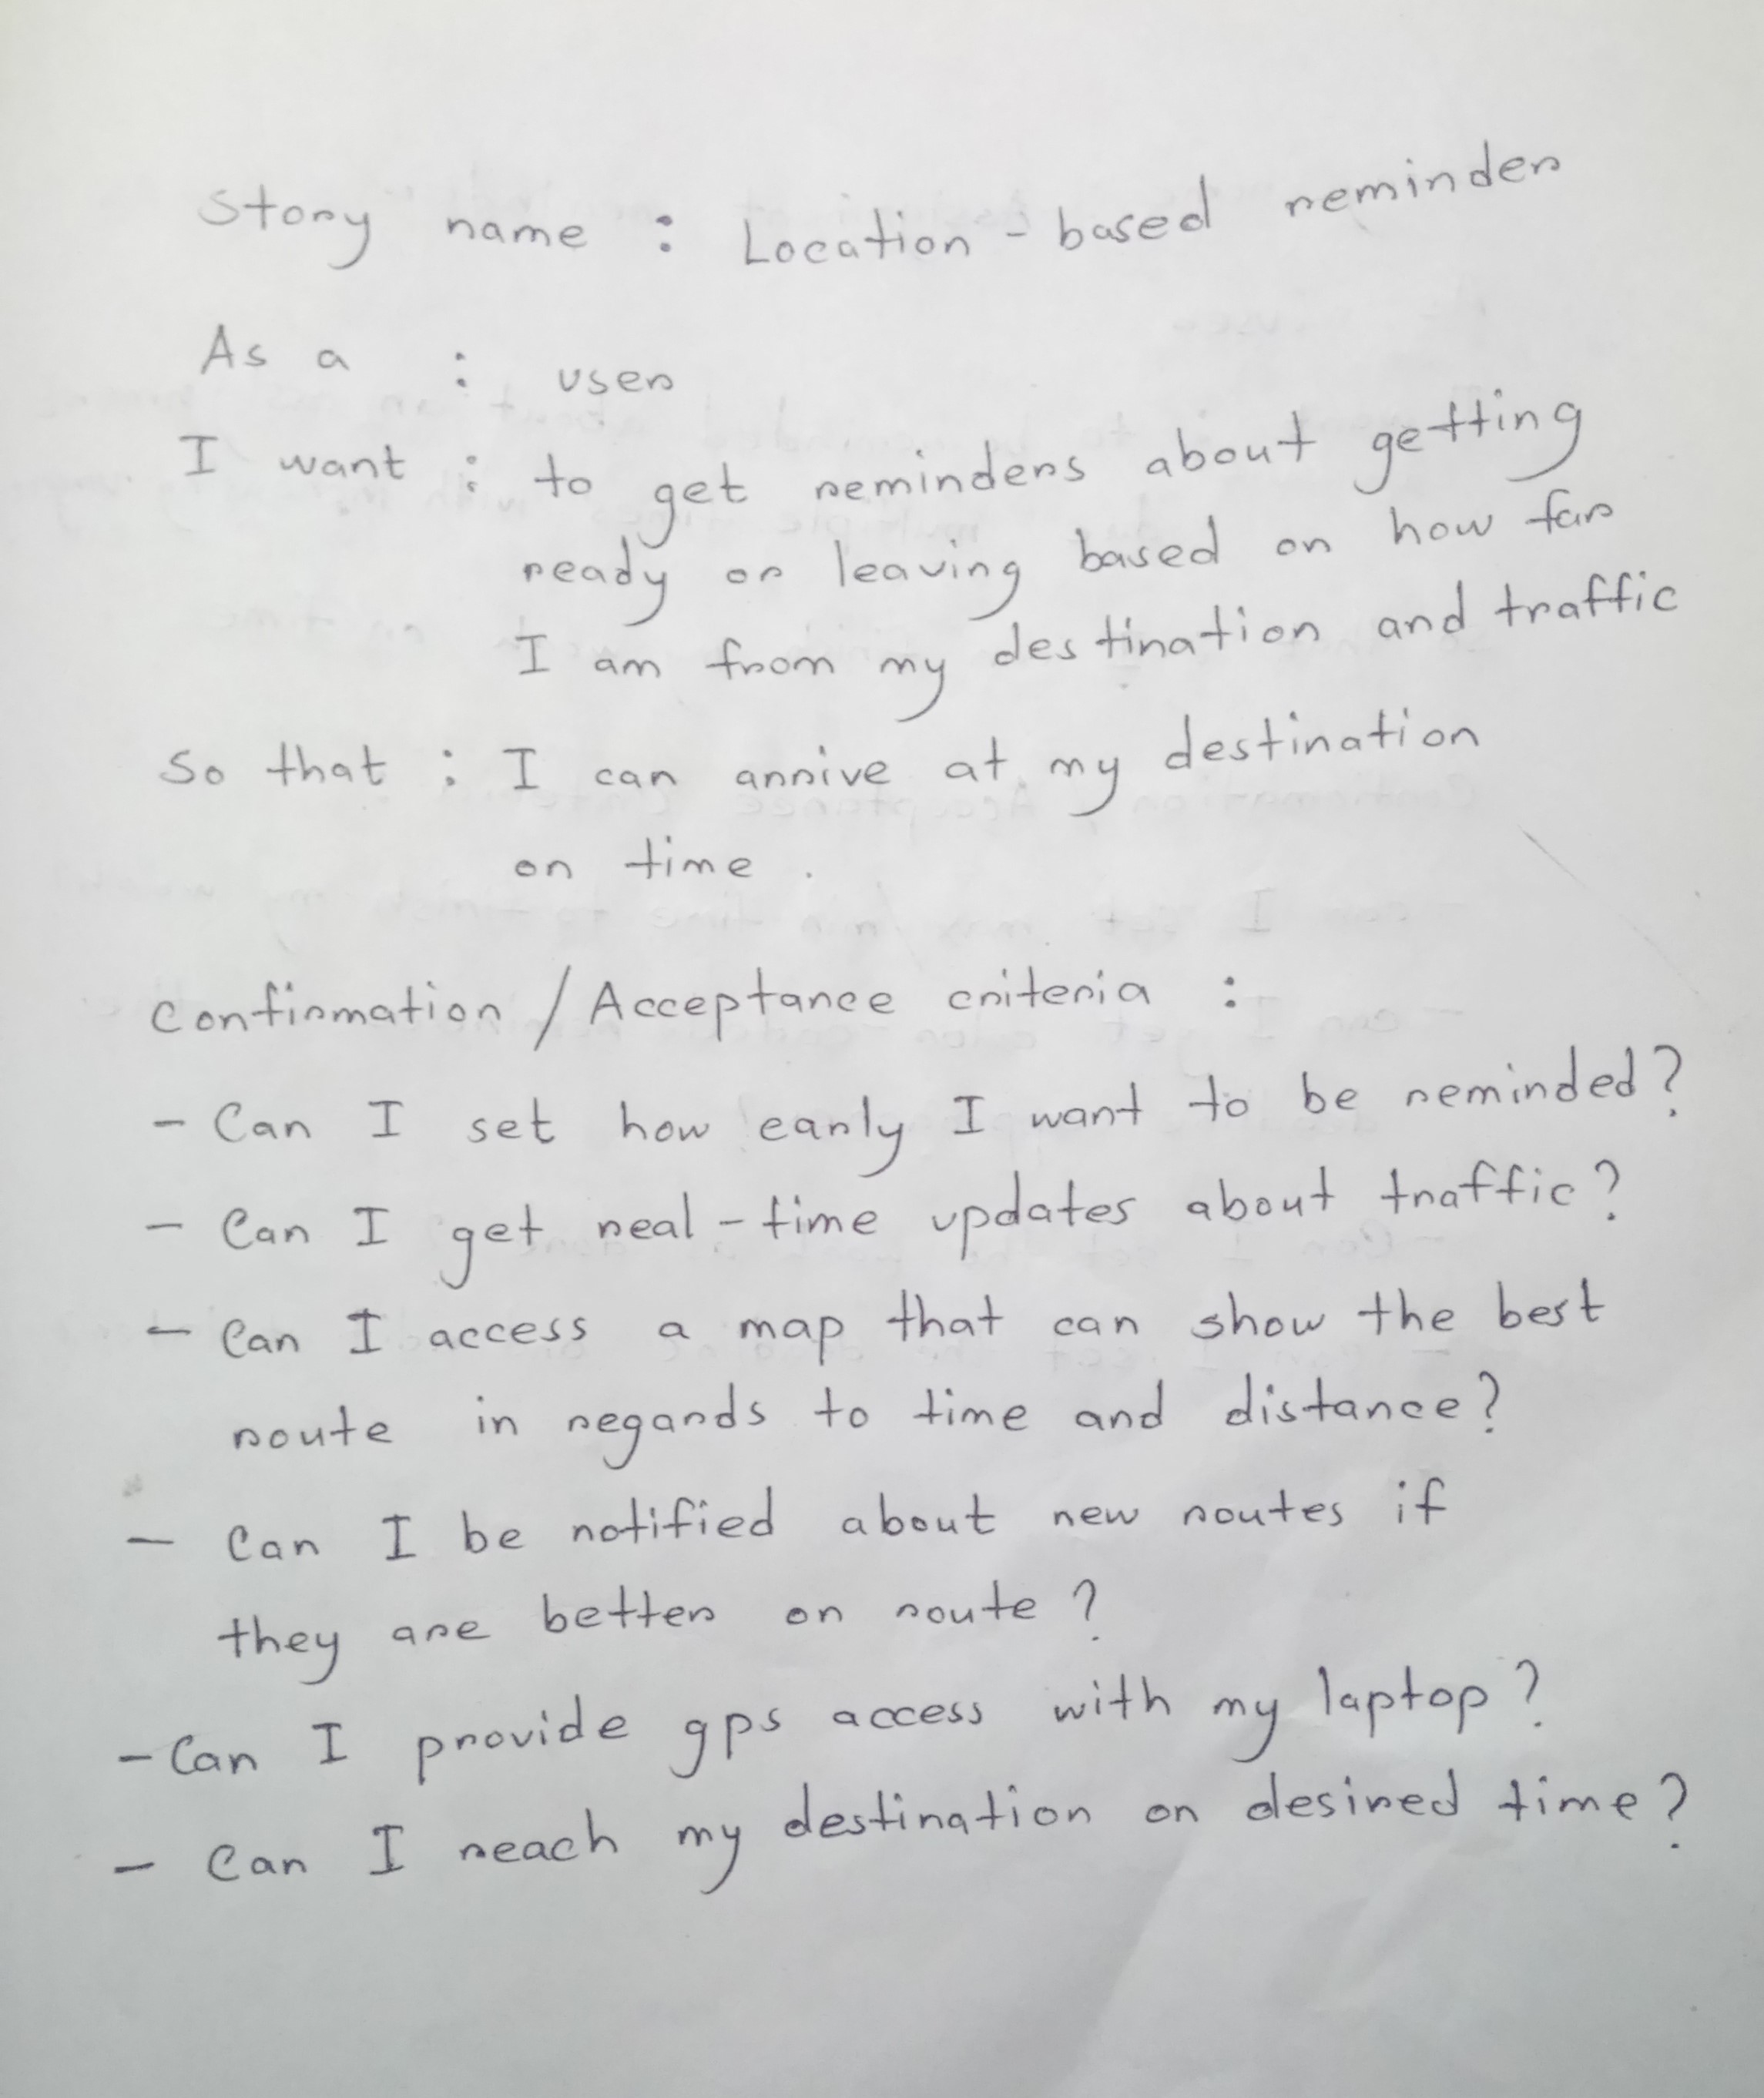 Story name : Location - based reminder
As a : user
I want : to get reminders about getting
ready or leaving based on how far
I am from my destination and traffic
So that : I can arrive at my destination
on time .
Confirmation / Acceptance criteria :
- Can I set how early I want to be reminded?
- Can I get real-time updates about traffic?
- Can I access a map that can show the best
route in regards to time and distance?
- Can I be notified about new routes if
they are better on route ?
- Can I provide gps access with my laptop?
- Can I reach my destination on desired time?